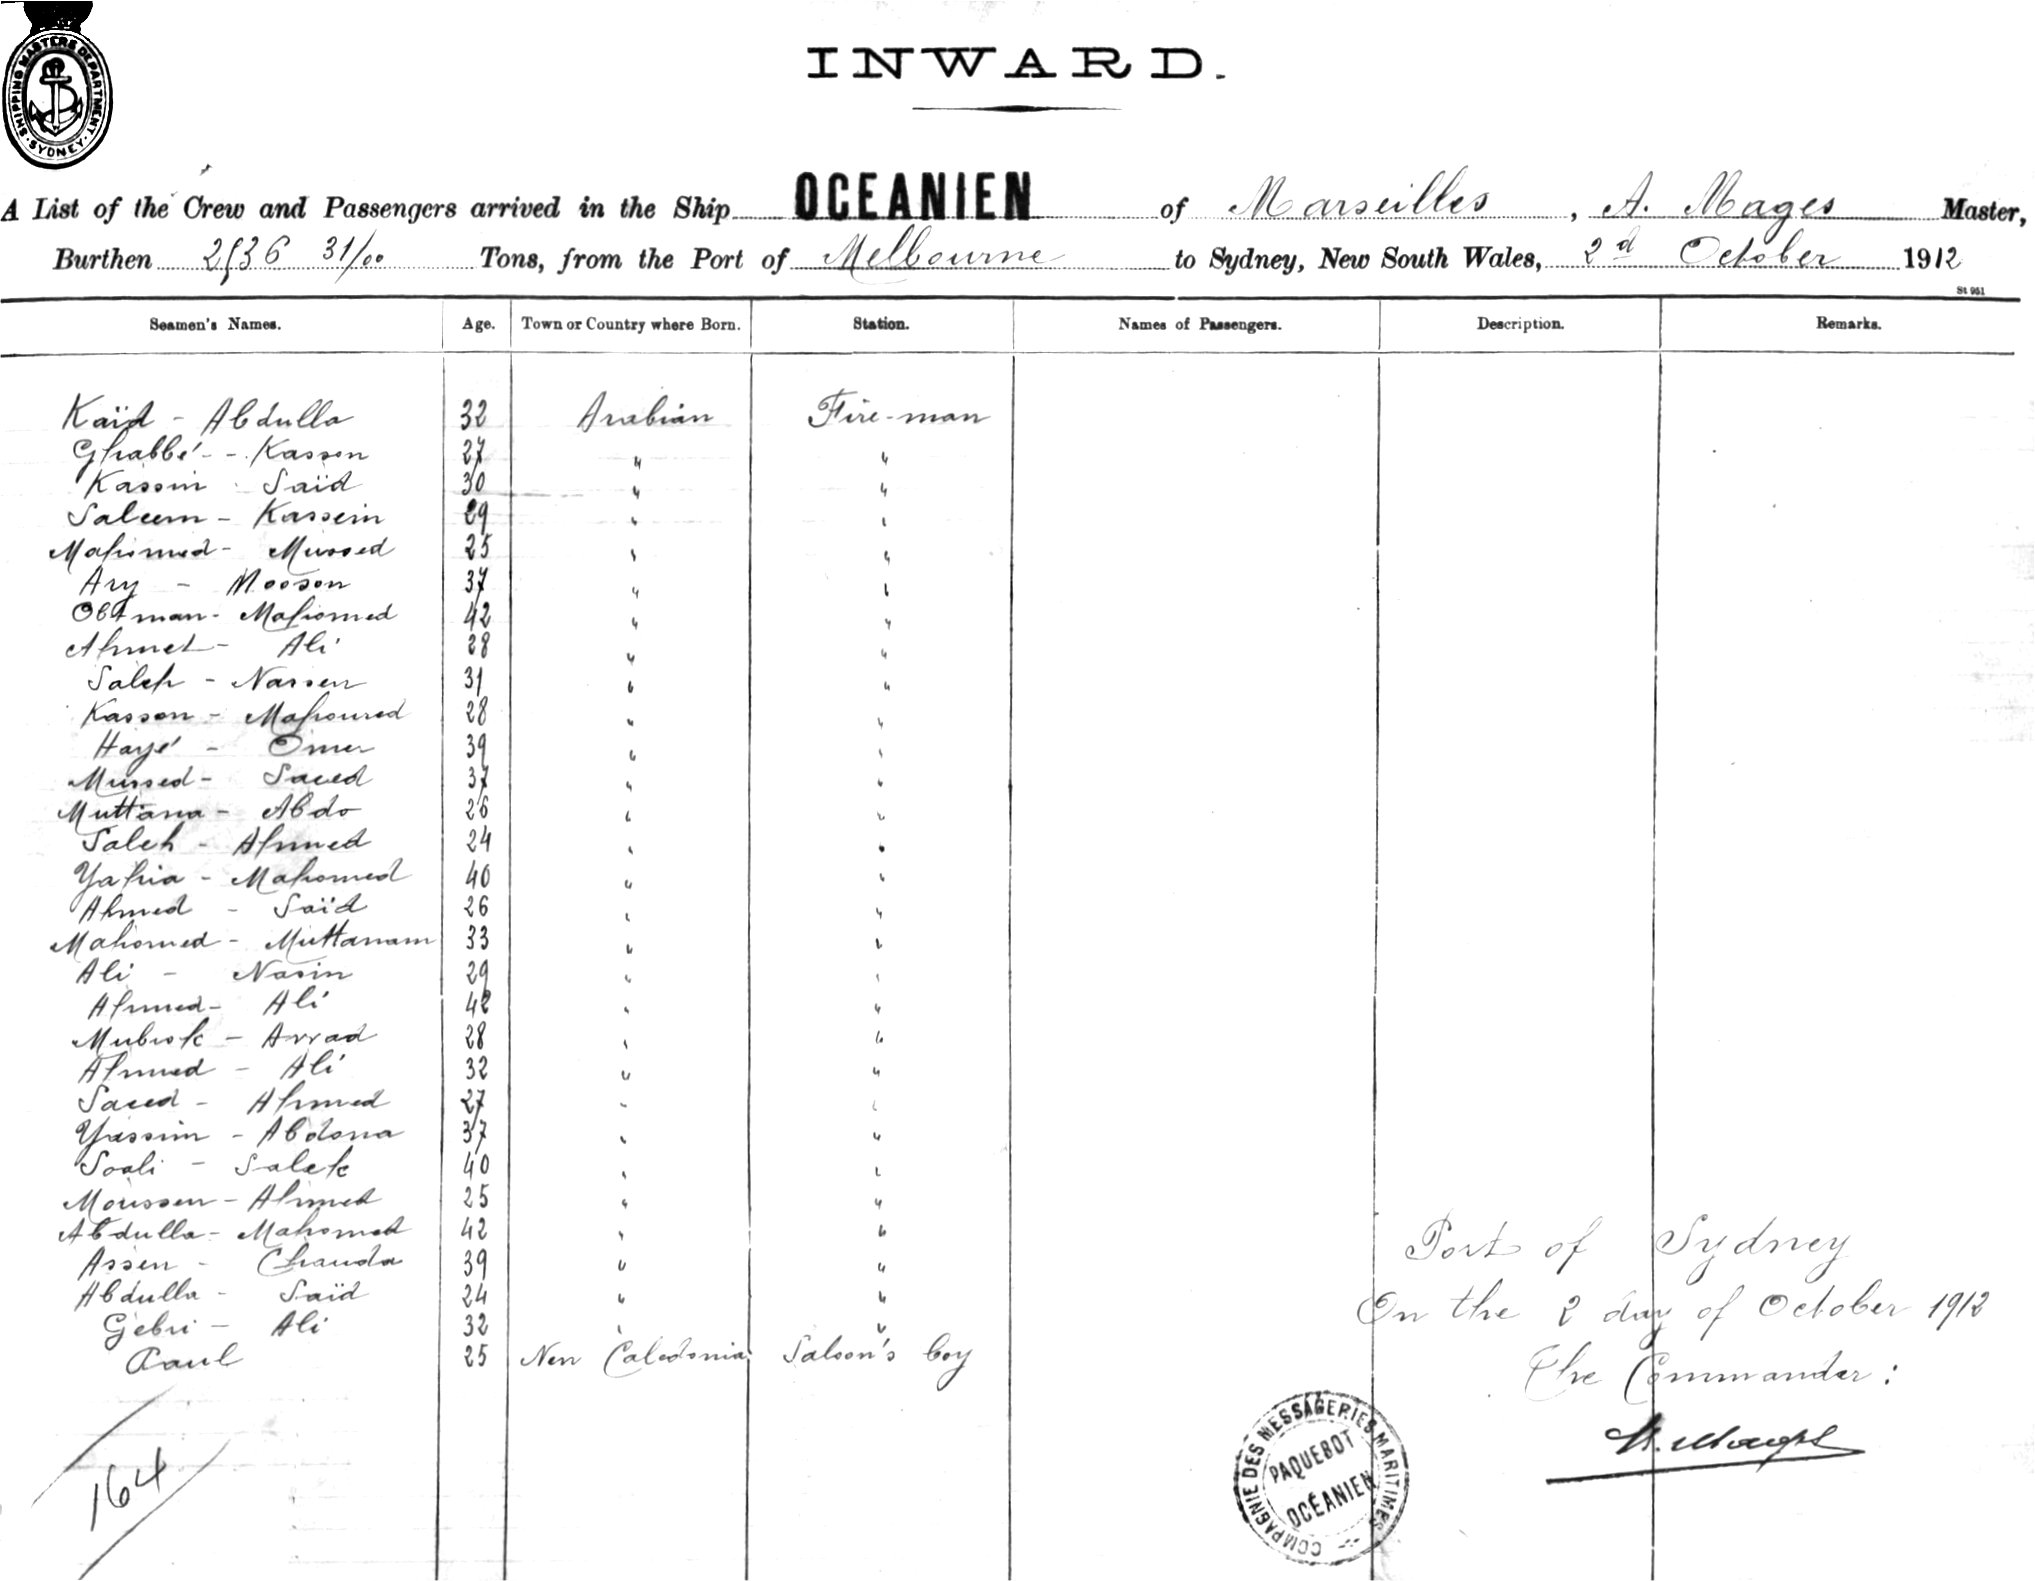 SHIPPING MASTERS DEPARTMENT · SYDNEY ·
INWARD.
A List of the Crew and Passengers arrived in the Ship OCEANIEN of Marseilles, A. Mages Master,
Burthen 2536 31/00 Tons, from the Port of Melbourne to Sydney, New South Wales, 2d October 1912
St 951
Seamen's Names. Age. Town or Country where Born. Station. Names of Passengers. Description. Remarks.
Kaïd - Abdulla 32 Arabian Fire-man
Ghabbé - - Kasson 27 " "
Kassin Saïd 30 " "
Saleem - Kassein 29 " "
Mahomed - Mussed 25 " "
Ary - Mooson 37 " "
Obtman - Mahomed 42 " "
Ahmet - Ali 28 " "
Saleh - Nassen 31 " "
Kasson - Mahomed 28 " "
Hayé - Omer 39 " "
Mussed - Saeed 37 " "
Muttana - Abdo 26 " "
Saleh - Ahmed 24 " "
Yahia - Mahomed 40 " "
Ahmed - Saïd 26 " "
Mahomed - Muttanam 33 " "
Ali - Nasin 29 " "
Ahmed - Ali 42 " "
Mubrok - Avrad 28 " "
Ahmed - Ali 32 " "
Saeed - Ahmed 27 " "
Yassim - Abdona 37 " "
Soali - Salek 40 " "
Moussen - Ahmed 25 " "
Abdulla - Mahomed 42 " "
Assen - Chauda 39 " "
Abdulla - Saïd 24 " "
Gebri - Ali 32 " "
Paul 25 New Caledonia Saloon's boy
Port of Sydney
On the 2 day of October 1912
The Commander:
164
COMPAGNIE DES MESSAGERIES MARITIMES
PAQUEBOT
OCÉANIEN